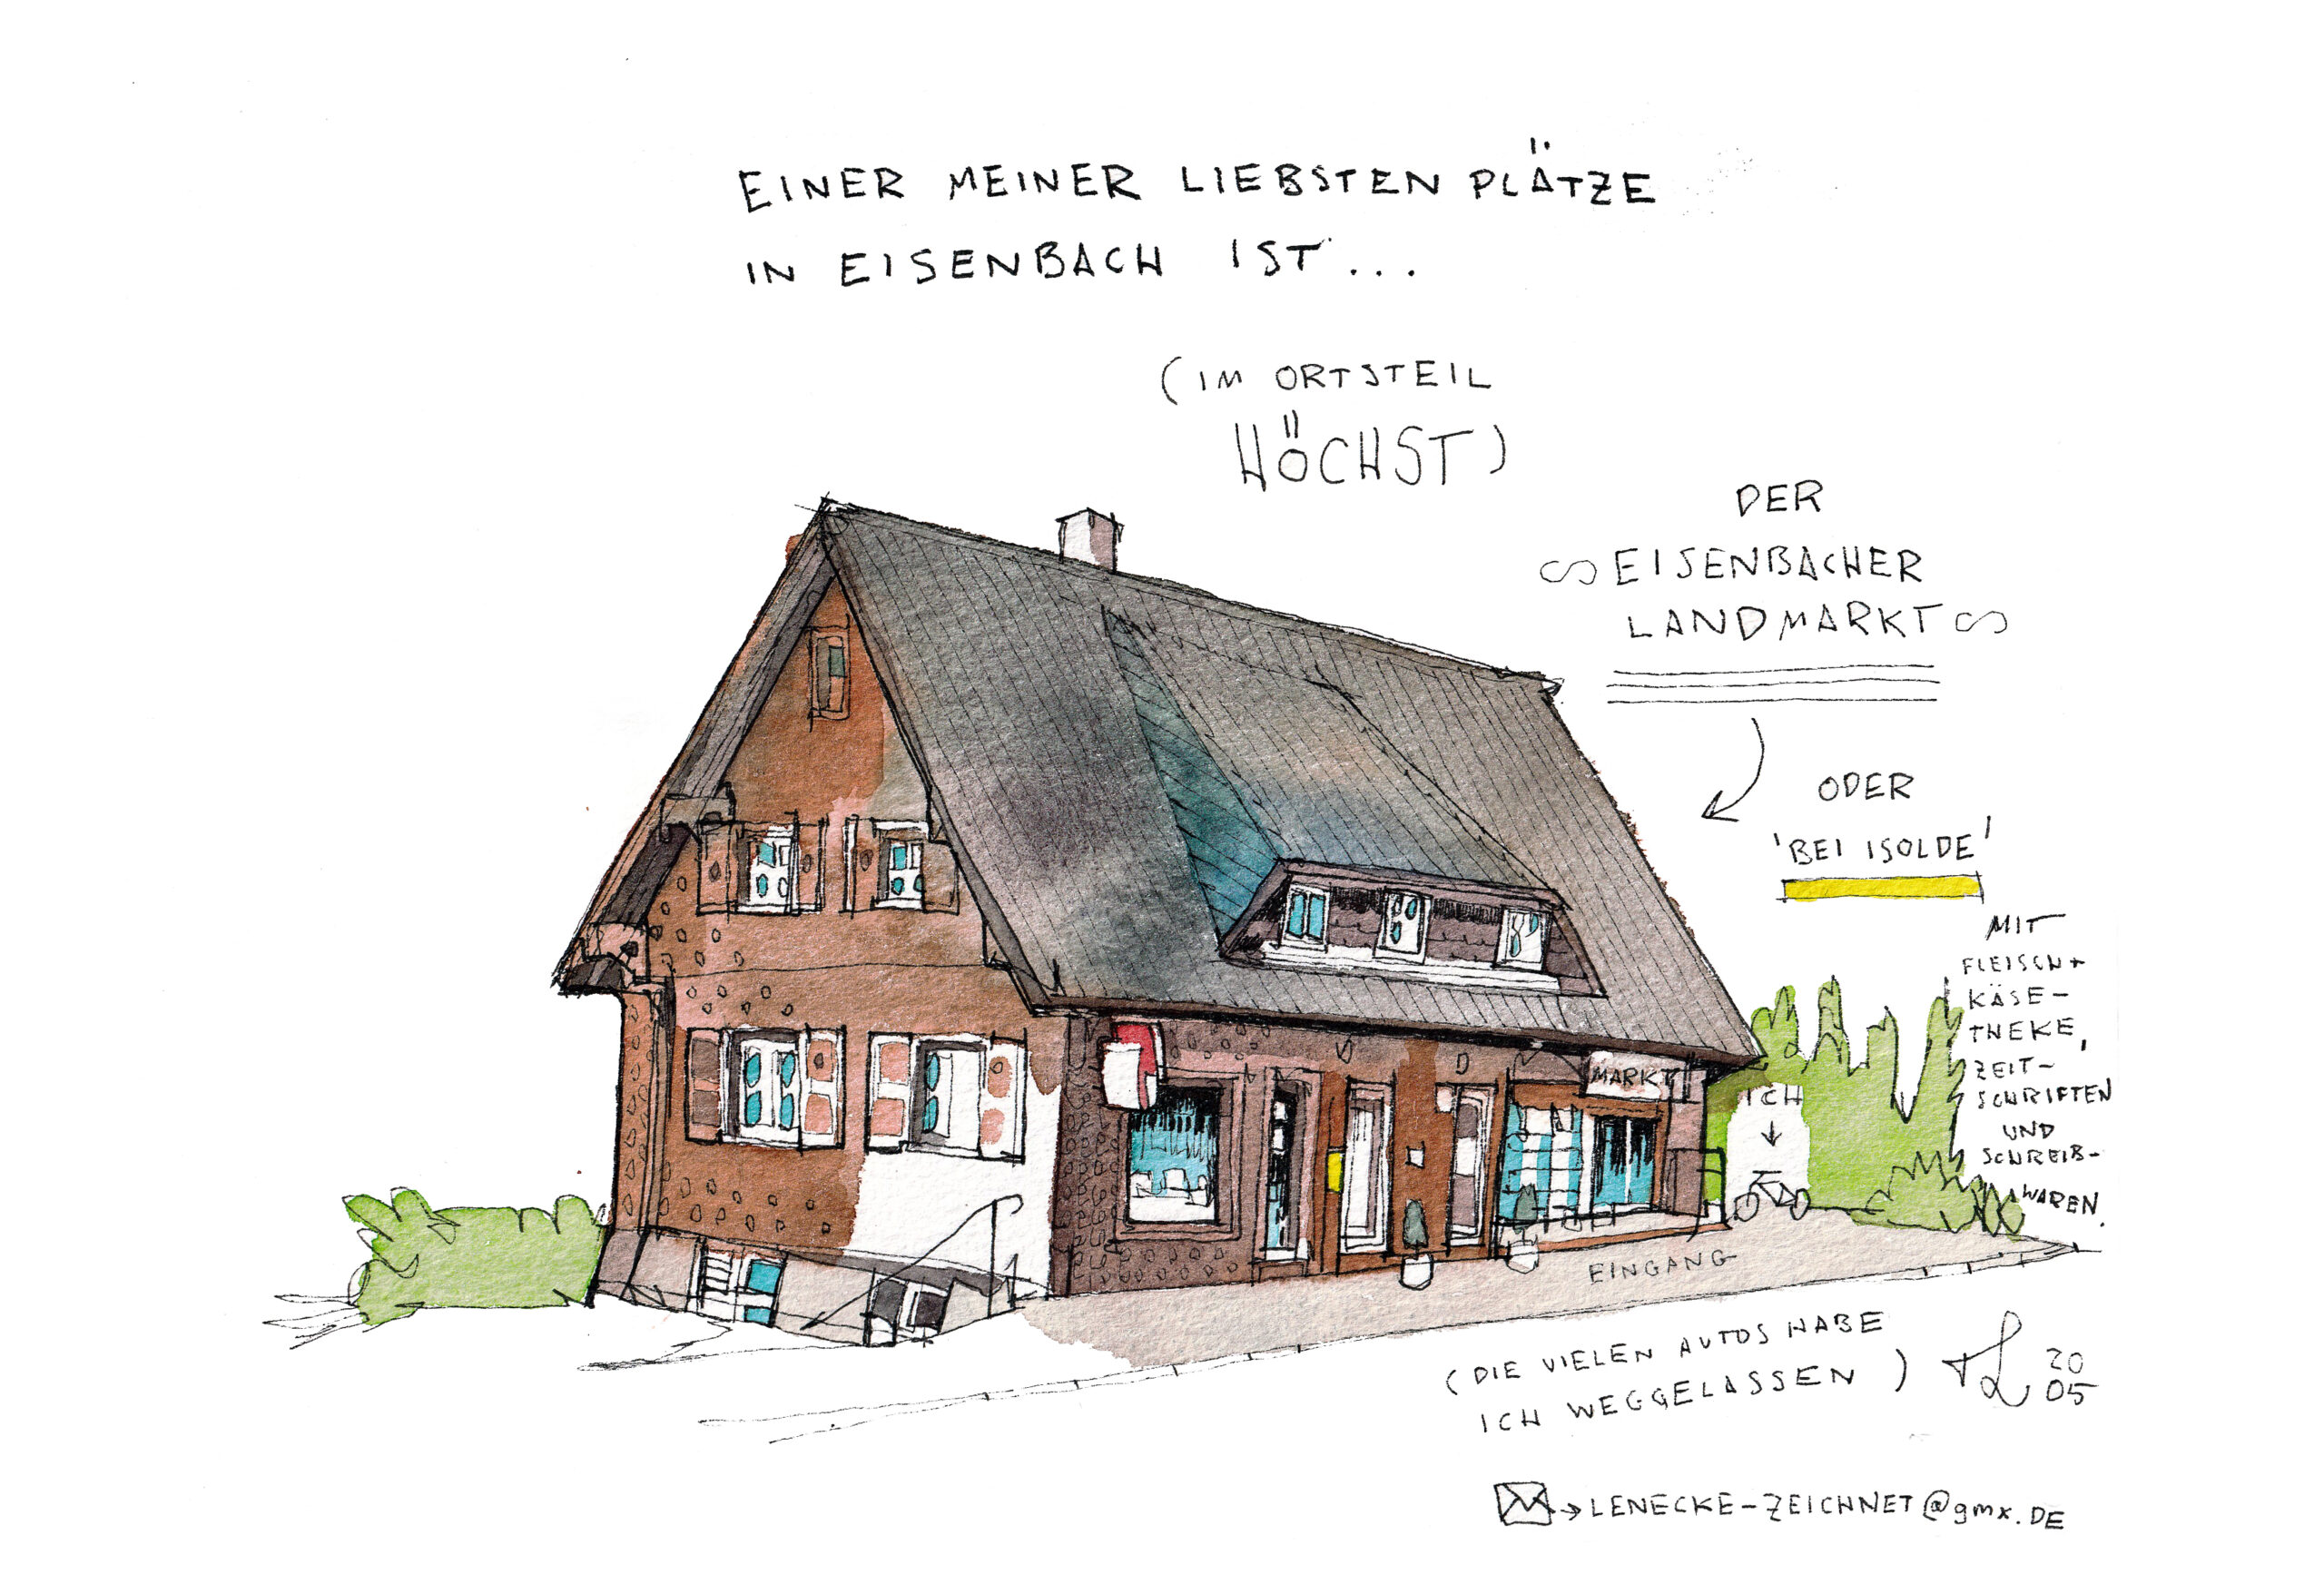 EINER MEINER LIEBSTEN PLÄTZE
IN EISENBACH IST...
(IM ORTSTEIL
HÖCHST)
DER
EISENBACHER
LANDMARKT
ODER
'BEI ISOLDE'
MIT
FLEISCH+
KÄSE-
THEKE,
ZEIT-
SCHRIFTEN
UND
SCHREIB-
WAREN.
MARKT
ICH
EINGANG
(DIE VIELEN AUTOS HABE
ICH WEGGELASSEN)
20
05
LENECKE-ZEICHNET@gmx.DE